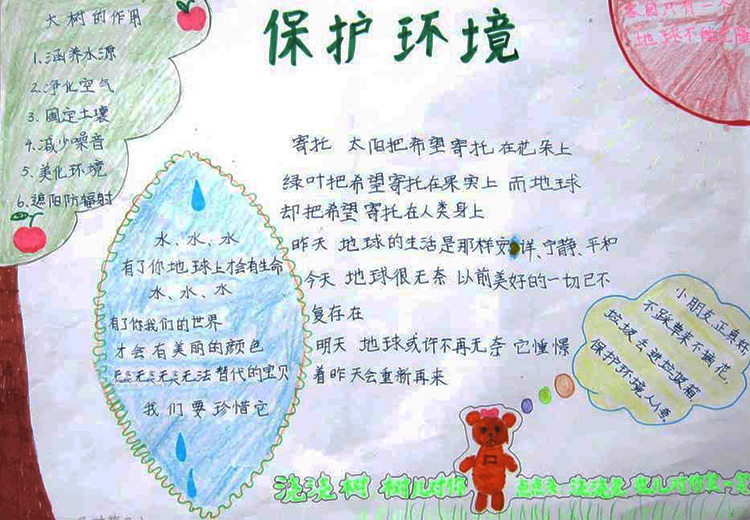 保护环境
大树的作用
1.涵养水源
2.净化空气
3.固定土壤
4.减少噪音
5.美化环境
6.遮阳防辐射
家园只有一个
地球不能
寄托 太阳把希望寄托在花朵上
绿叶把希望寄托在果实上 而地球
却把希望寄托在人类身上
昨天 地球的生活是那样安详、宁静、平和
今天 地球很无奈 以前美好的一切已不
复存在
明天 地球或许不再无奈 它憧憬
着昨天会重新再来
水、水、水
有了你地球上才会有生命
水、水、水
有了你我们的世界
才会有美丽的颜色
无法替代的宝贝
我们要珍惜它
小朋友正真好
不踩草来不摘花,
垃圾丢进垃圾箱,
保护环境人人夸。
浇浇树 树儿对你 点点头 浇浇花 花儿对你笑一笑